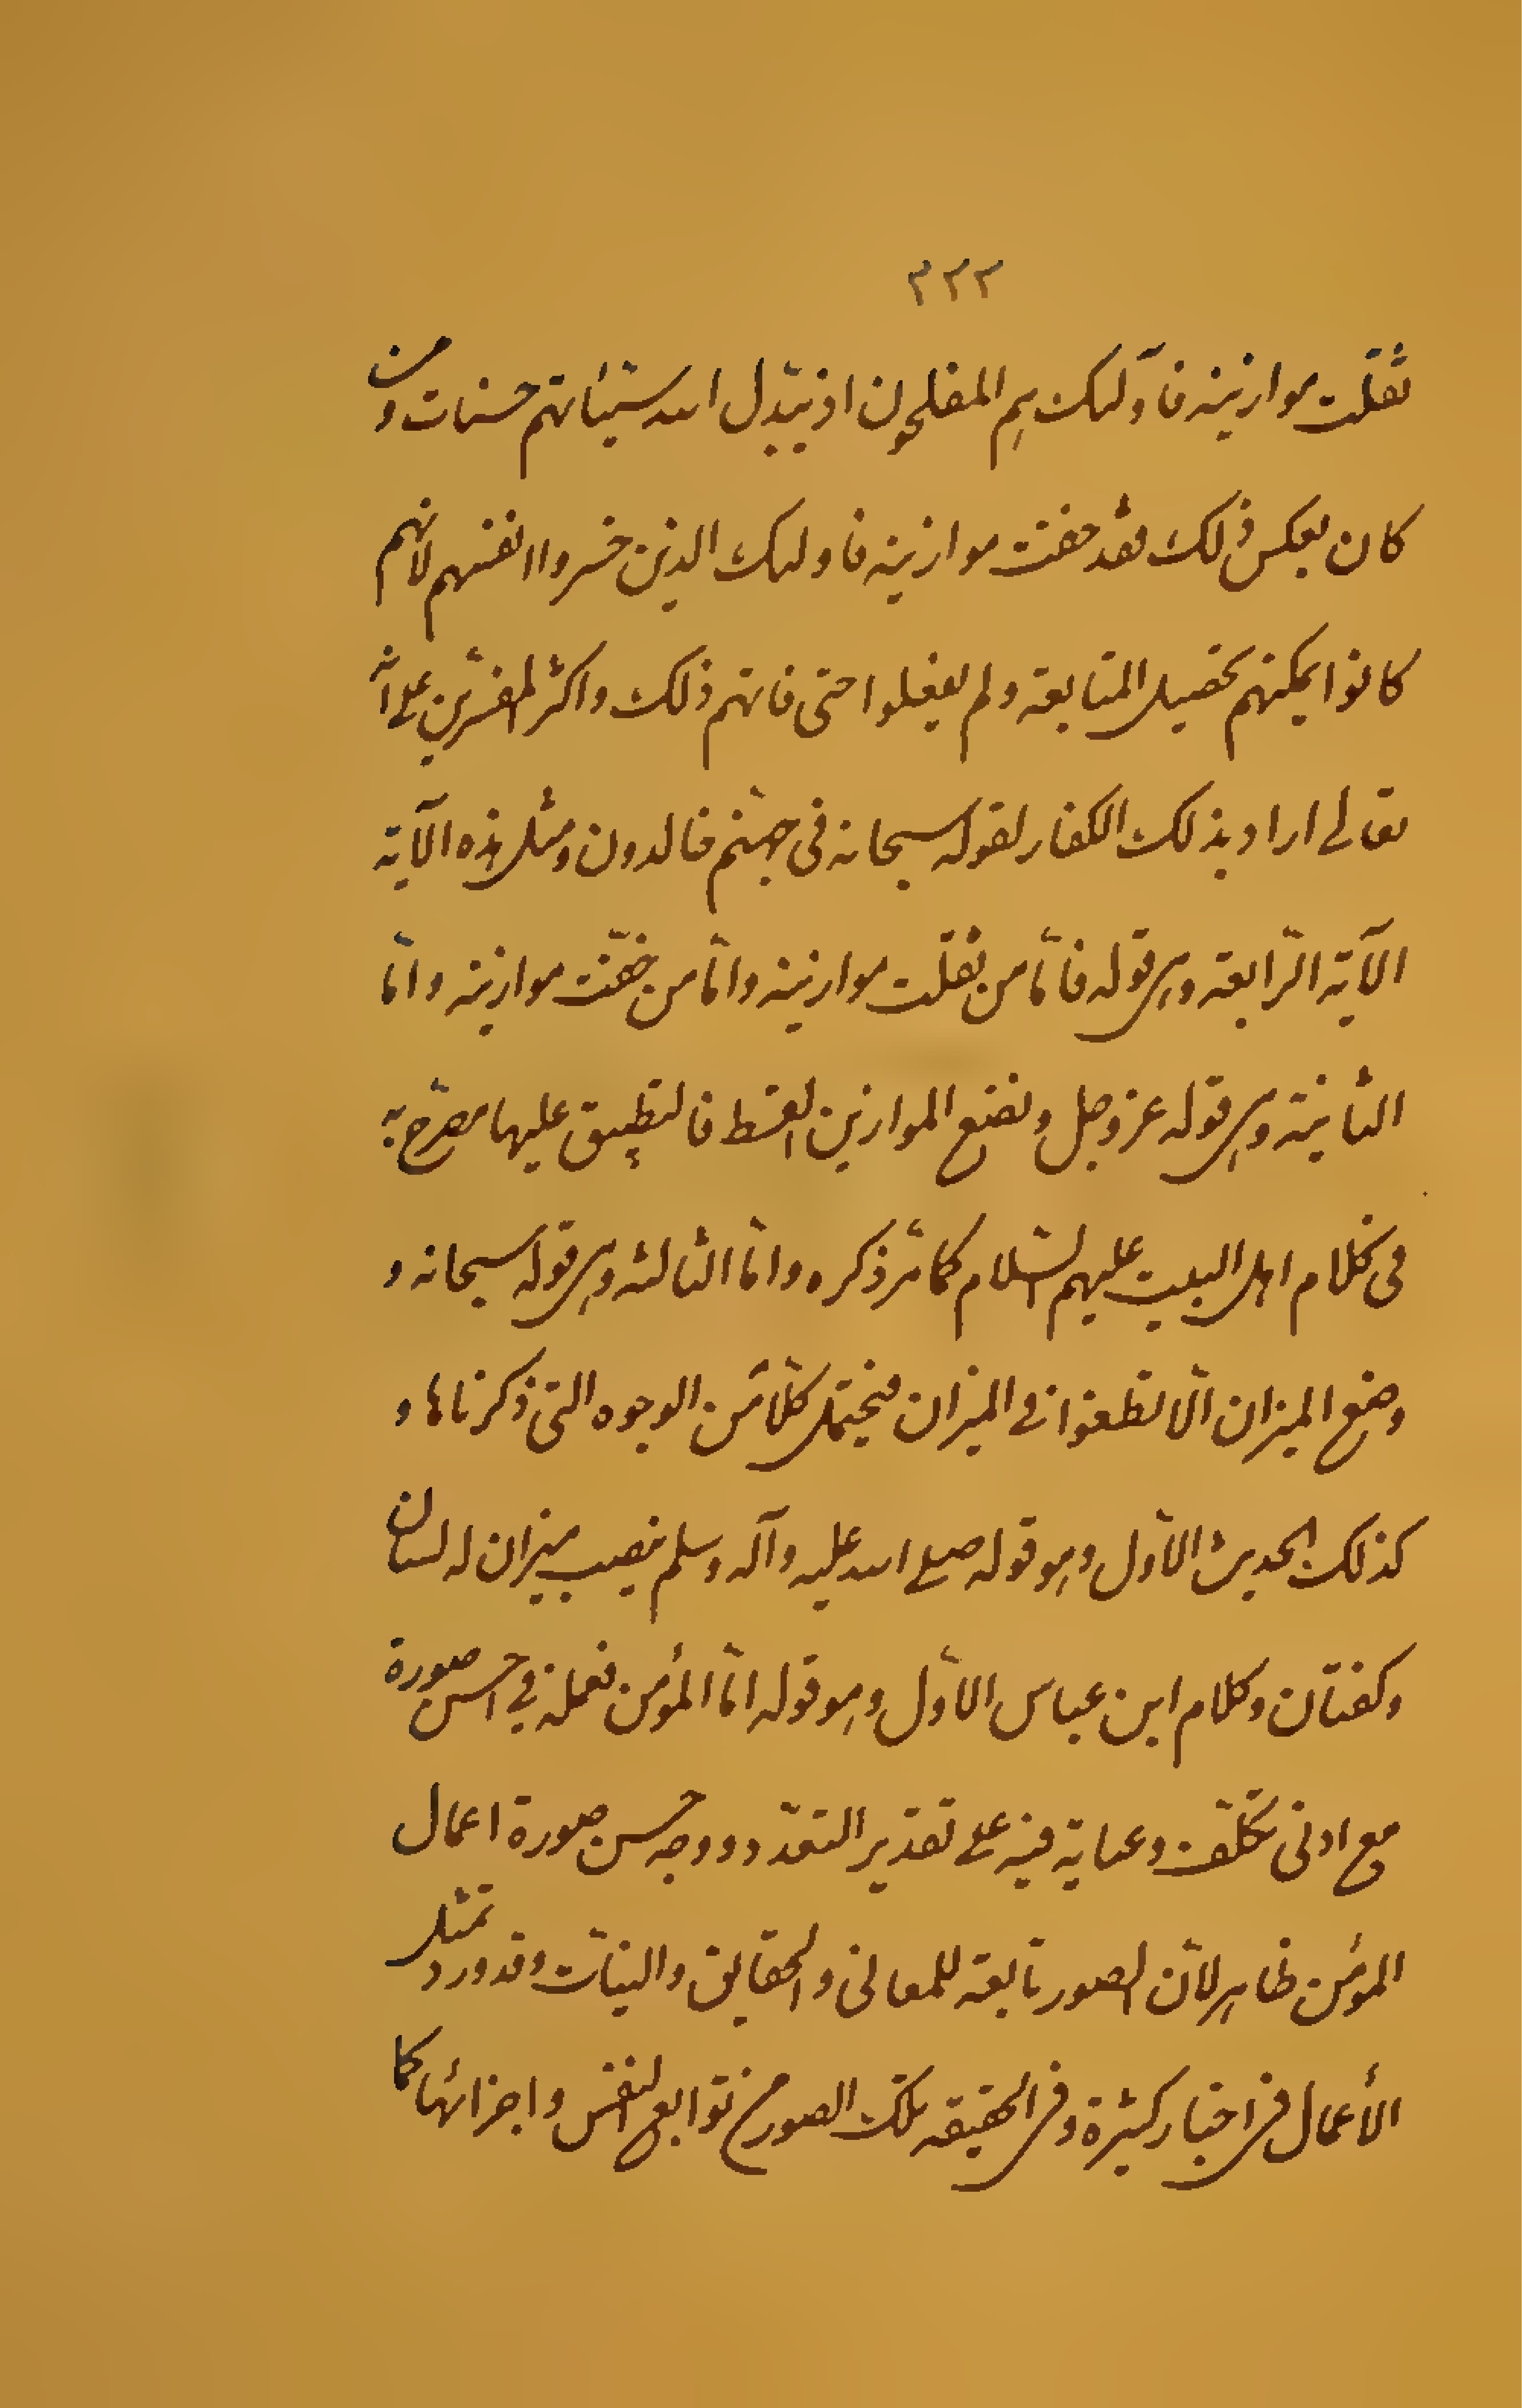 ٣٢٢
ثقلت موازينه فأولئك هم المفلحون اذ يبدّل الله سيّئاتهم حسنات و من
كان بعكس ذلك فقد خفت موازينه فاولئك الذين خسروا انفسهم لانهم
كانوا يمكنهم تحصيل المتابعة ولم يفعلوا حتى فاتهم ذلك واكثر المفسّرين على انّه
تعالى اراد بذلك الكفار لقوله سبحانه فى جهنّم خالدون ومثل هذه الآية
الآية الرّابعة وهى قوله فأمّا من ثقلت موازينه وامّا من خفّت موازينه وامّا
الثانية وهى قوله عز وجل ونضع الموازين القسط فالتطبيق عليها مصرّح به
فى كلام اهل البيت عليهم السّلام كما مرّ ذكره وامّا الثالثه وهى قوله سبحانه و
وضع الميزان الّا تطغوا فى الميزان فيحتمل كلّا من الوجوه التى ذكرناها و
كذلك الحديث الاوّل وهو قوله صلى الله عليه وآله وسلم ينصب ميزان له لسان
وكفتان وكلام ابن عباس الاوّل وهو قوله امّا المؤمن فعمله فى احسن صورة
مع ادنى تكلّف وعناية فيه على تقدير التعدّد ووجه حسن صورة اعمال
المؤمن ظاهر لأنّ الصور تابعة للمعانى والحقايق والنيّات وقد ورد تمثّل
الأعمال فى اخبار كثيرة وفى الحقيقه تلك الصور من توابع النفس واجزائها كما